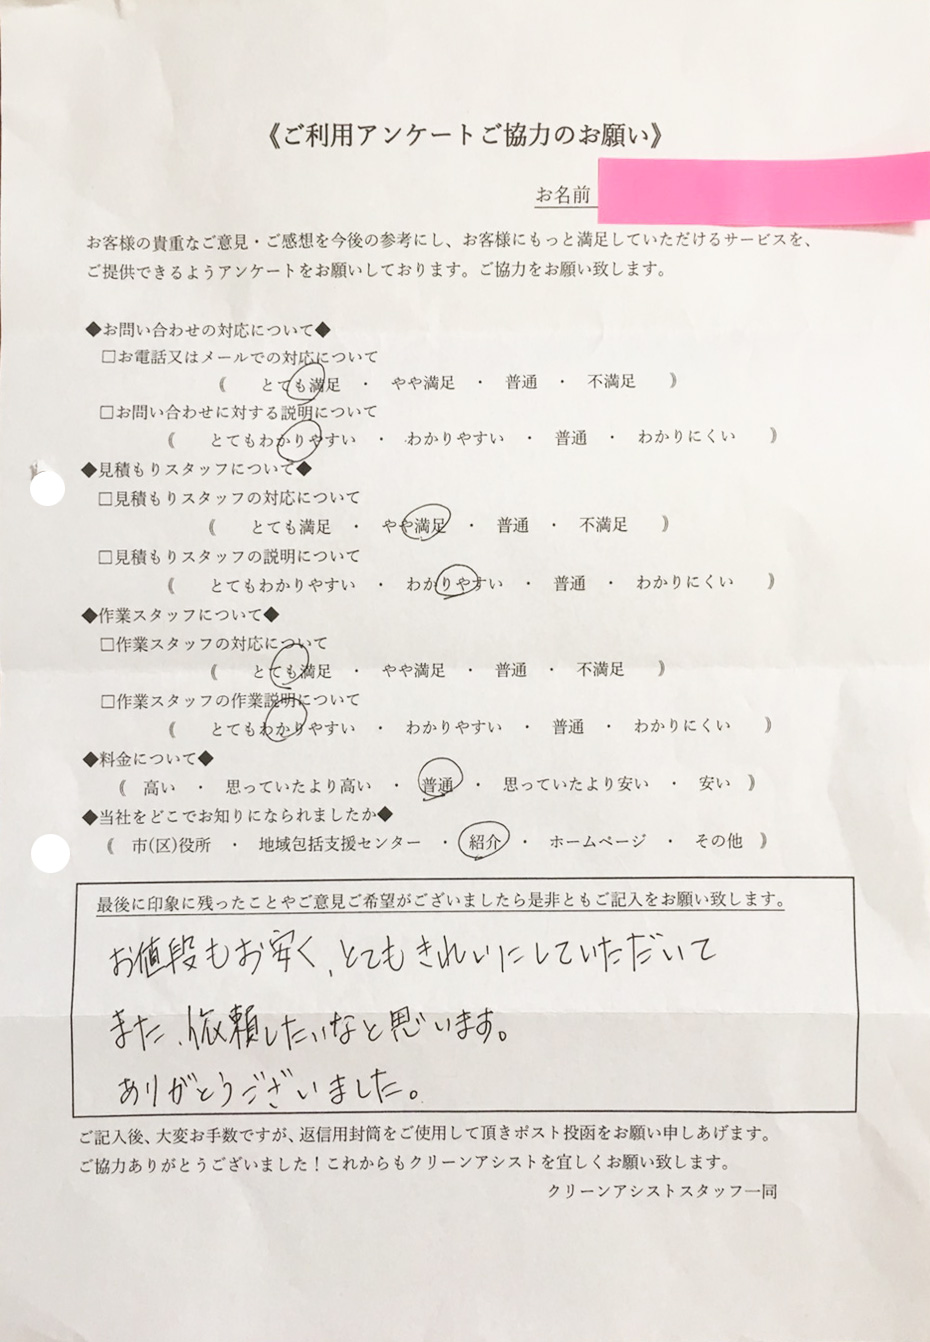 《ご利用アンケートご協力のお願い》
お名前
お客様の貴重なご意見・ご感想を今後の参考にし、お客様にもっと満足していただけるサービスを、
ご提供できるようアンケートをお願いしております。ご協力をお願い致します。
◆お問い合わせの対応について◆
□お電話又はメールでの対応について
《 とても満足 ・ やや満足 ・ 普通 ・ 不満足 》
□お問い合わせに対する説明について
《 とてもわかりやすい ・ わかりやすい ・ 普通 ・ わかりにくい 》
◆見積もりスタッフについて◆
□見積もりスタッフの対応について
《 とても満足 ・ やや満足 ・ 普通 ・ 不満足 》
□見積もりスタッフの説明について
《 とてもわかりやすい ・ わかりやすい ・ 普通 ・ わかりにくい 》
◆作業スタッフについて◆
□作業スタッフの対応について
《 とても満足 ・ やや満足 ・ 普通 ・ 不満足 》
□作業スタッフの作業説明について
《 とてもわかりやすい ・ わかりやすい ・ 普通 ・ わかりにくい 》
◆料金について◆
《 高い ・ 思っていたより高い ・ 普通 ・ 思っていたより安い ・ 安い 》
◆当社をどこでお知りになられましたか◆
《 市(区)役所 ・ 地域包括支援センター ・ 紹介 ・ ホームページ ・ その他 》
最後に印象に残ったことやご意見ご希望がございましたら是非ともご記入をお願い致します。
お値段もお安く、とてもきれいにしていただいて
また、依頼したいなと思います。
ありがとうございました。
ご記入後、大変お手数ですが、返信用封筒をご使用して頂きポスト投函をお願い申しあげます。
ご協力ありがとうございました！これからもクリーンアシストを宜しくお願い致します。
クリーンアシストスタッフ一同